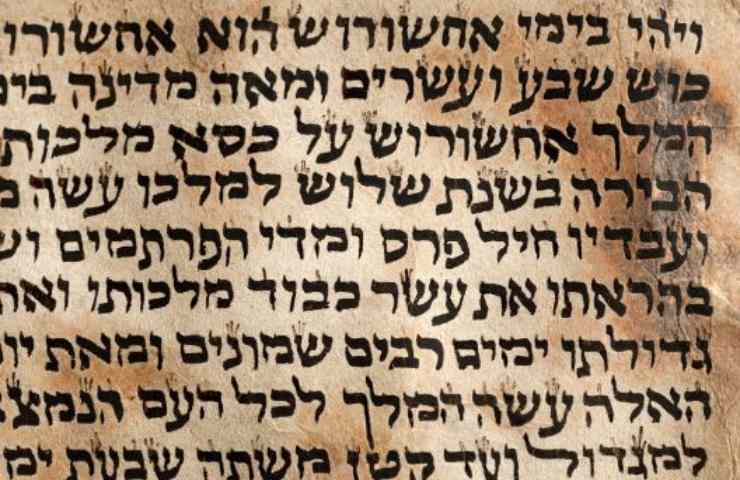 ויהי בימי אחשורוש הוא אחשורו
כוש שבע ועשרים ומאה מדינה בימ
המלך אחשורוש על כסא מלכות
הבירה בשנת שלוש למלכו עשה מ
ועבדיו חיל פרס ומדי הפרתמים וש
בהראתו את עשר כבוד מלכותו ואת
גדולתו ימים רבים שמונים ומאת יו
האלה עשה המלך לכל העם הנמצא
למגדול ועד קטן משתה שבעת ימ